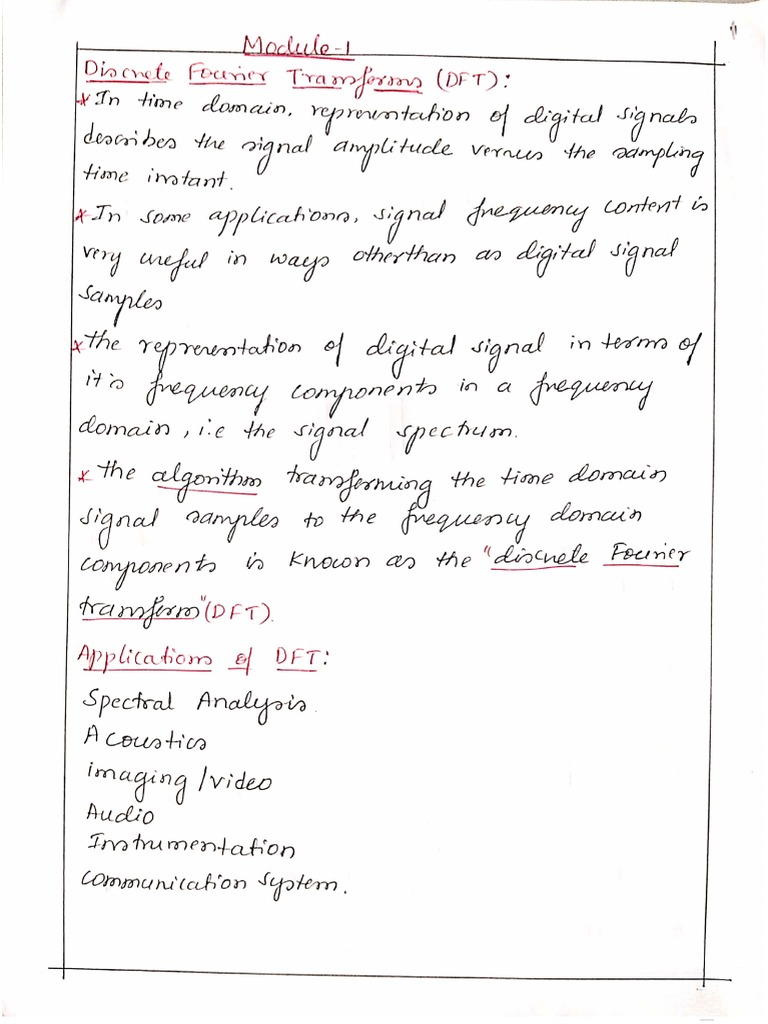 Module-1
Discrete Fourier Transforms (DFT):
* In time domain, representation of digital signals
describes the signal amplitude versus the sampling
time instant.
* In some applications, signal frequency content is
very useful in ways otherthan as digital signal
samples
* the representation of digital signal in terms of
it's frequency components in a frequency
domain, i.e the signal spectrum.
* the algorithm transforming the time domain
signal samples to the frequency domain
components is known as the "discrete Fourier
transform" (DFT).
Applications of DFT:
Spectral Analysis.
Acoustics
imaging/video
Audio
Instrumentation
communication system.